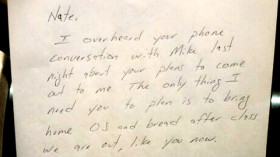 Nate,
I overheard your phone
conversation with Mike last
night about your plans to come
out to me. The only thing I
need you to plan is to bring
home OJ and bread after class
we are out, like you now.